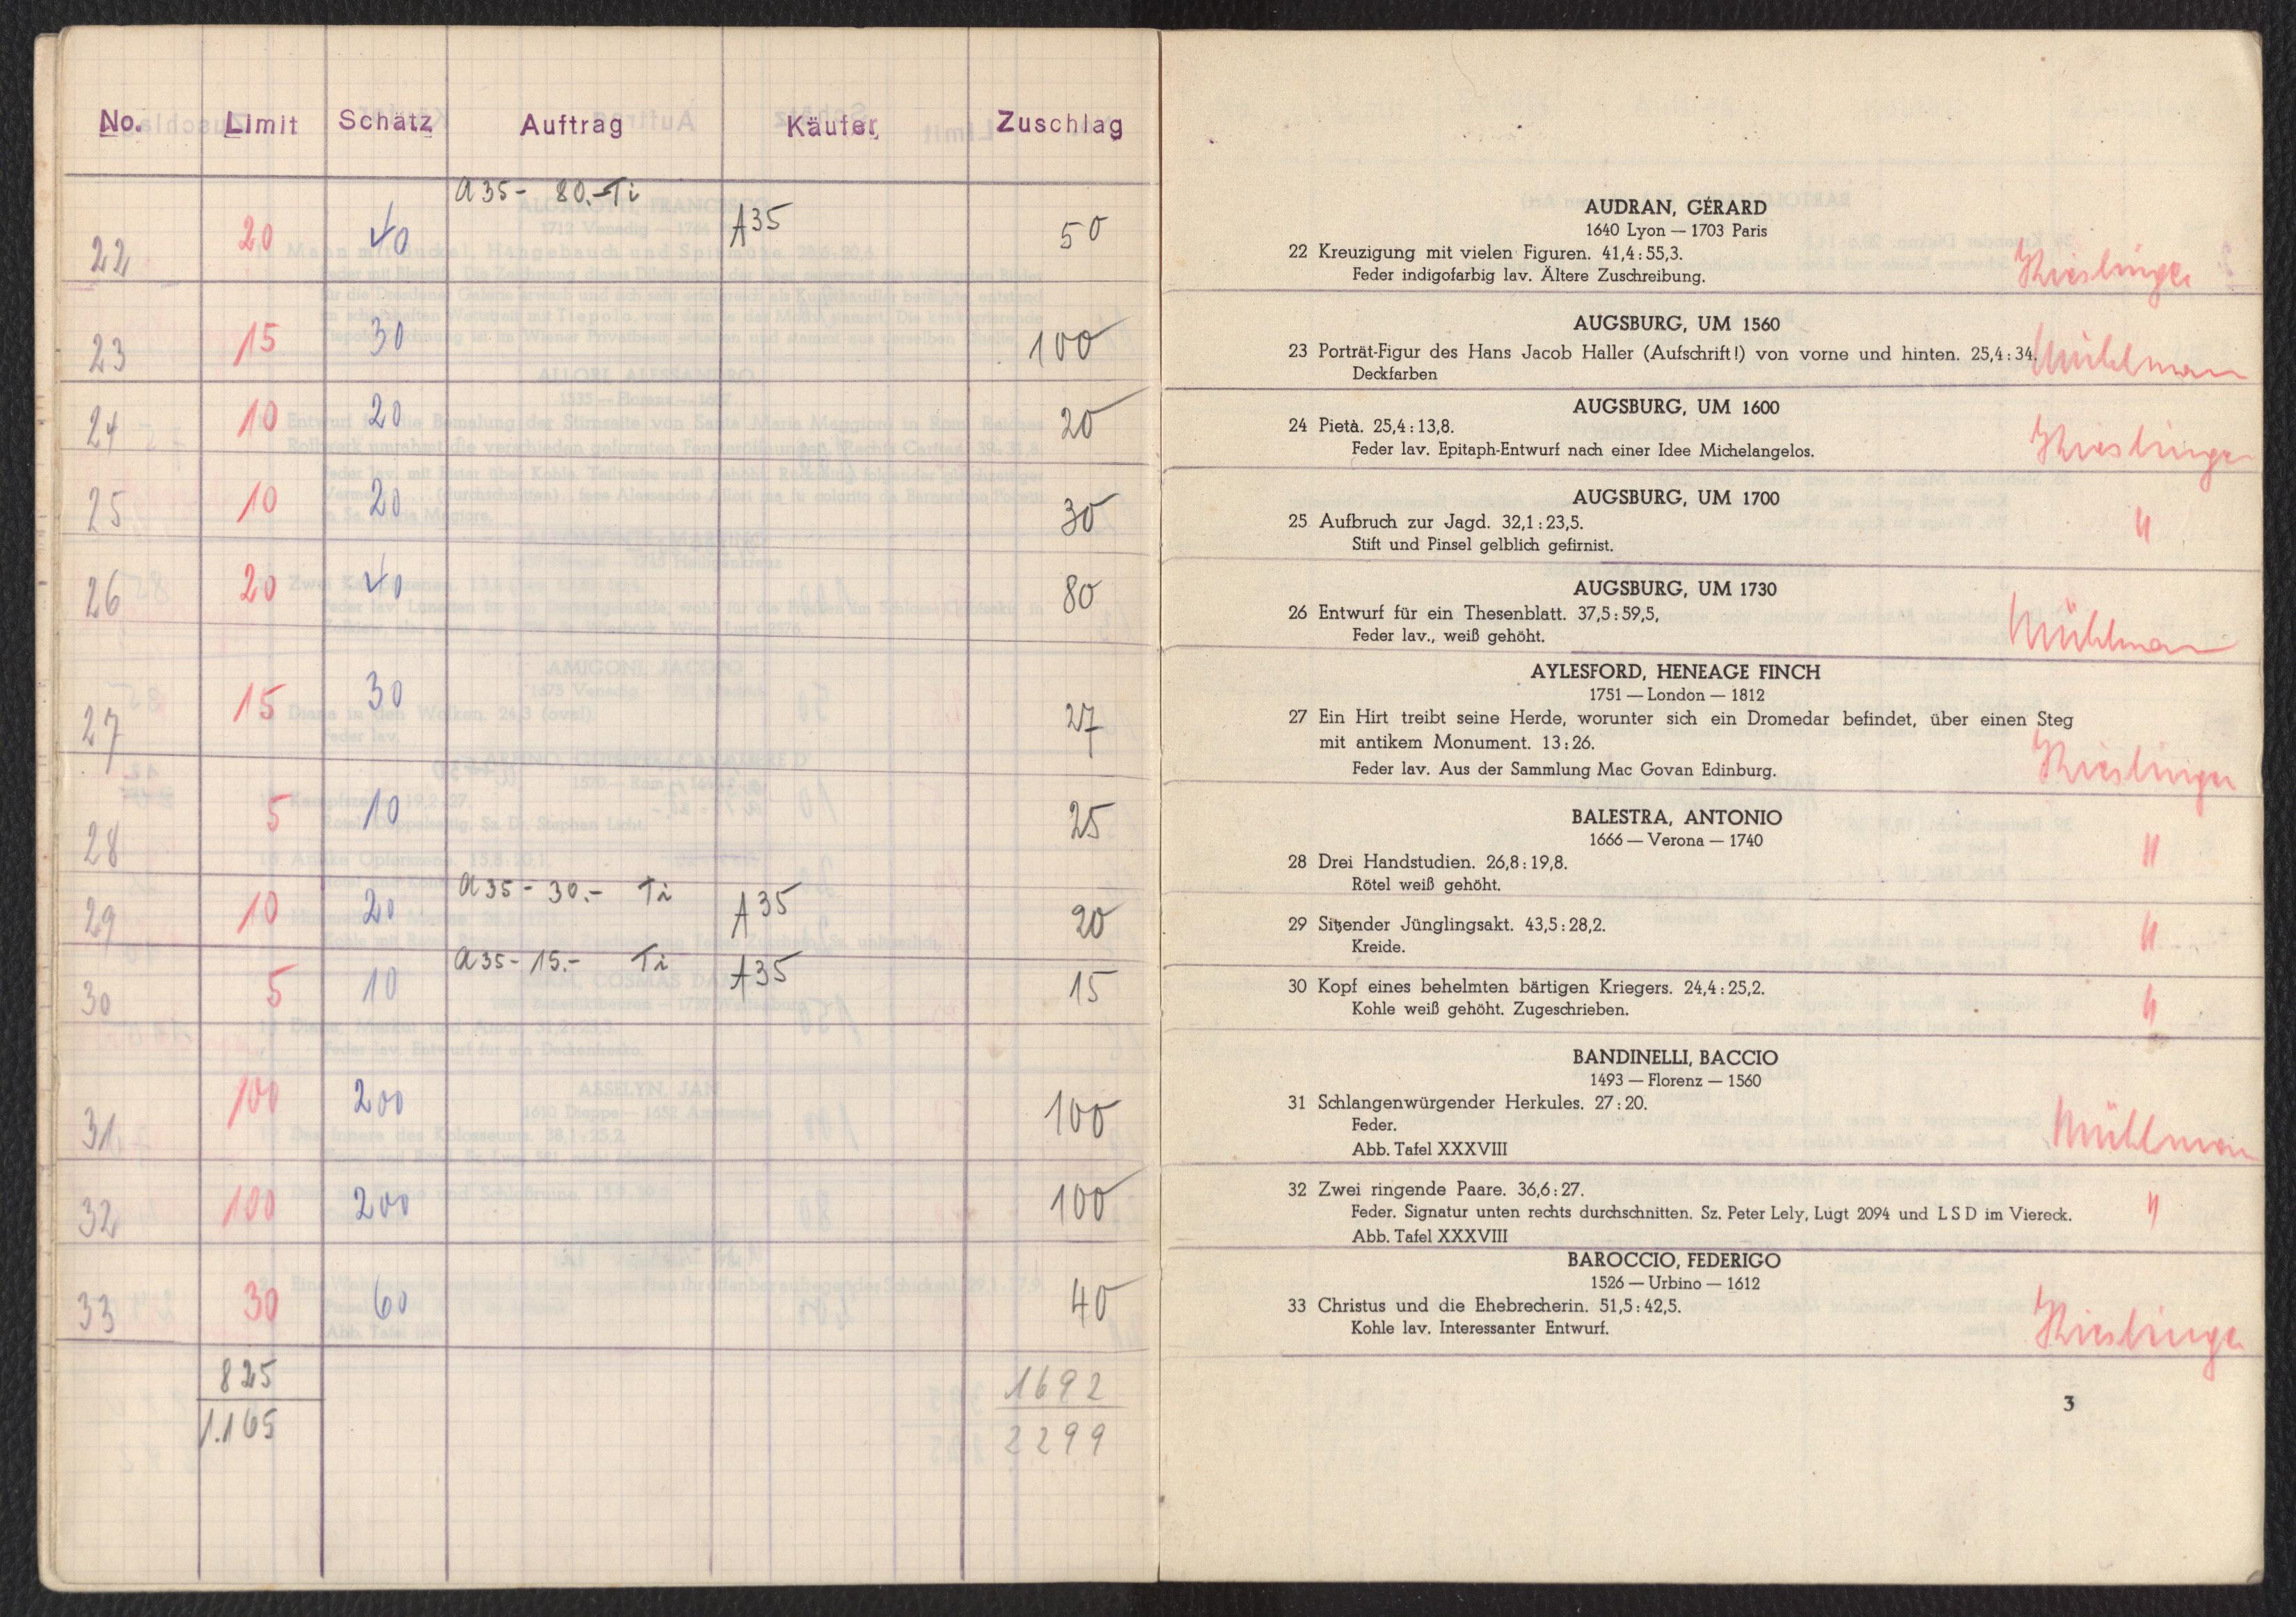 No. Limit Schätz Auftrag Käufer Zuschlag
22 20 40 A35- 80.- Ti A35 50
23 15 30 100
24 10 20 20
25 10 20 30
26 20 40 80
27 15 30 27
28 5 10 25
29 10 20 A35- 30.- Ti A35 20
30 5 10 A35- 15.- Ti A35 15
31 100 200 100
32 100 200 100
33 30 60 40
825 1692
1.165 2299
AUDRAN, GÉRARD
1640 Lyon — 1703 Paris
22 Kreuzigung mit vielen Figuren. 41,4 : 55,3.
Feder indigofarbig lav. Ältere Zuschreibung.
AUGSBURG, UM 1560
23 Porträt-Figur des Hans Jacob Haller (Aufschrift!) von vorne und hinten. 25,4 : 34. Mühlman
Deckfarben
AUGSBURG, UM 1600
24 Pietà. 25,4 : 13,8.
Feder lav. Epitaph-Entwurf nach einer Idee Michelangelos.
AUGSBURG, UM 1700
25 Aufbruch zur Jagd. 32,1 : 23,5.
"
Stift und Pinsel gelblich gefirnist.
AUGSBURG, UM 1730
26 Entwurf für ein Thesenblatt. 37,5 : 59,5,
Mühlman
Feder lav., weiß gehöht.
AYLESFORD, HENEAGE FINCH
1751 — London — 1812
27 Ein Hirt treibt seine Herde, worunter sich ein Dromedar befindet, über einen Steg
mit antikem Monument. 13 : 26.
Feder lav. Aus der Sammlung Mac Govan Edinburg.
BALESTRA, ANTONIO
1666 — Verona — 1740
28 Drei Handstudien. 26,8 : 19,8. "
Rötel weiß gehöht.
29 Sitzender Jünglingsakt. 43,5 : 28,2. "
Kreide.
30 Kopf eines behelmten bärtigen Kriegers. 24,4 : 25,2. "
Kohle weiß gehöht. Zugeschrieben.
BANDINELLI, BACCIO
1493 — Florenz — 1560
31 Schlangenwürgender Herkules. 27 : 20.
Feder. Mühlman
Abb. Tafel XXXVIII
32 Zwei ringende Paare. 36,6 : 27.
Feder. Signatur unten rechts durchschnitten. Sz. Peter Lely, Lugt 2094 und L S D im Viereck. "
Abb. Tafel XXXVIII
BAROCCIO, FEDERIGO
1526 — Urbino — 1612
33 Christus und die Ehebrecherin. 51,5 : 42,5.
Kohle lav. Interessanter Entwurf.
3